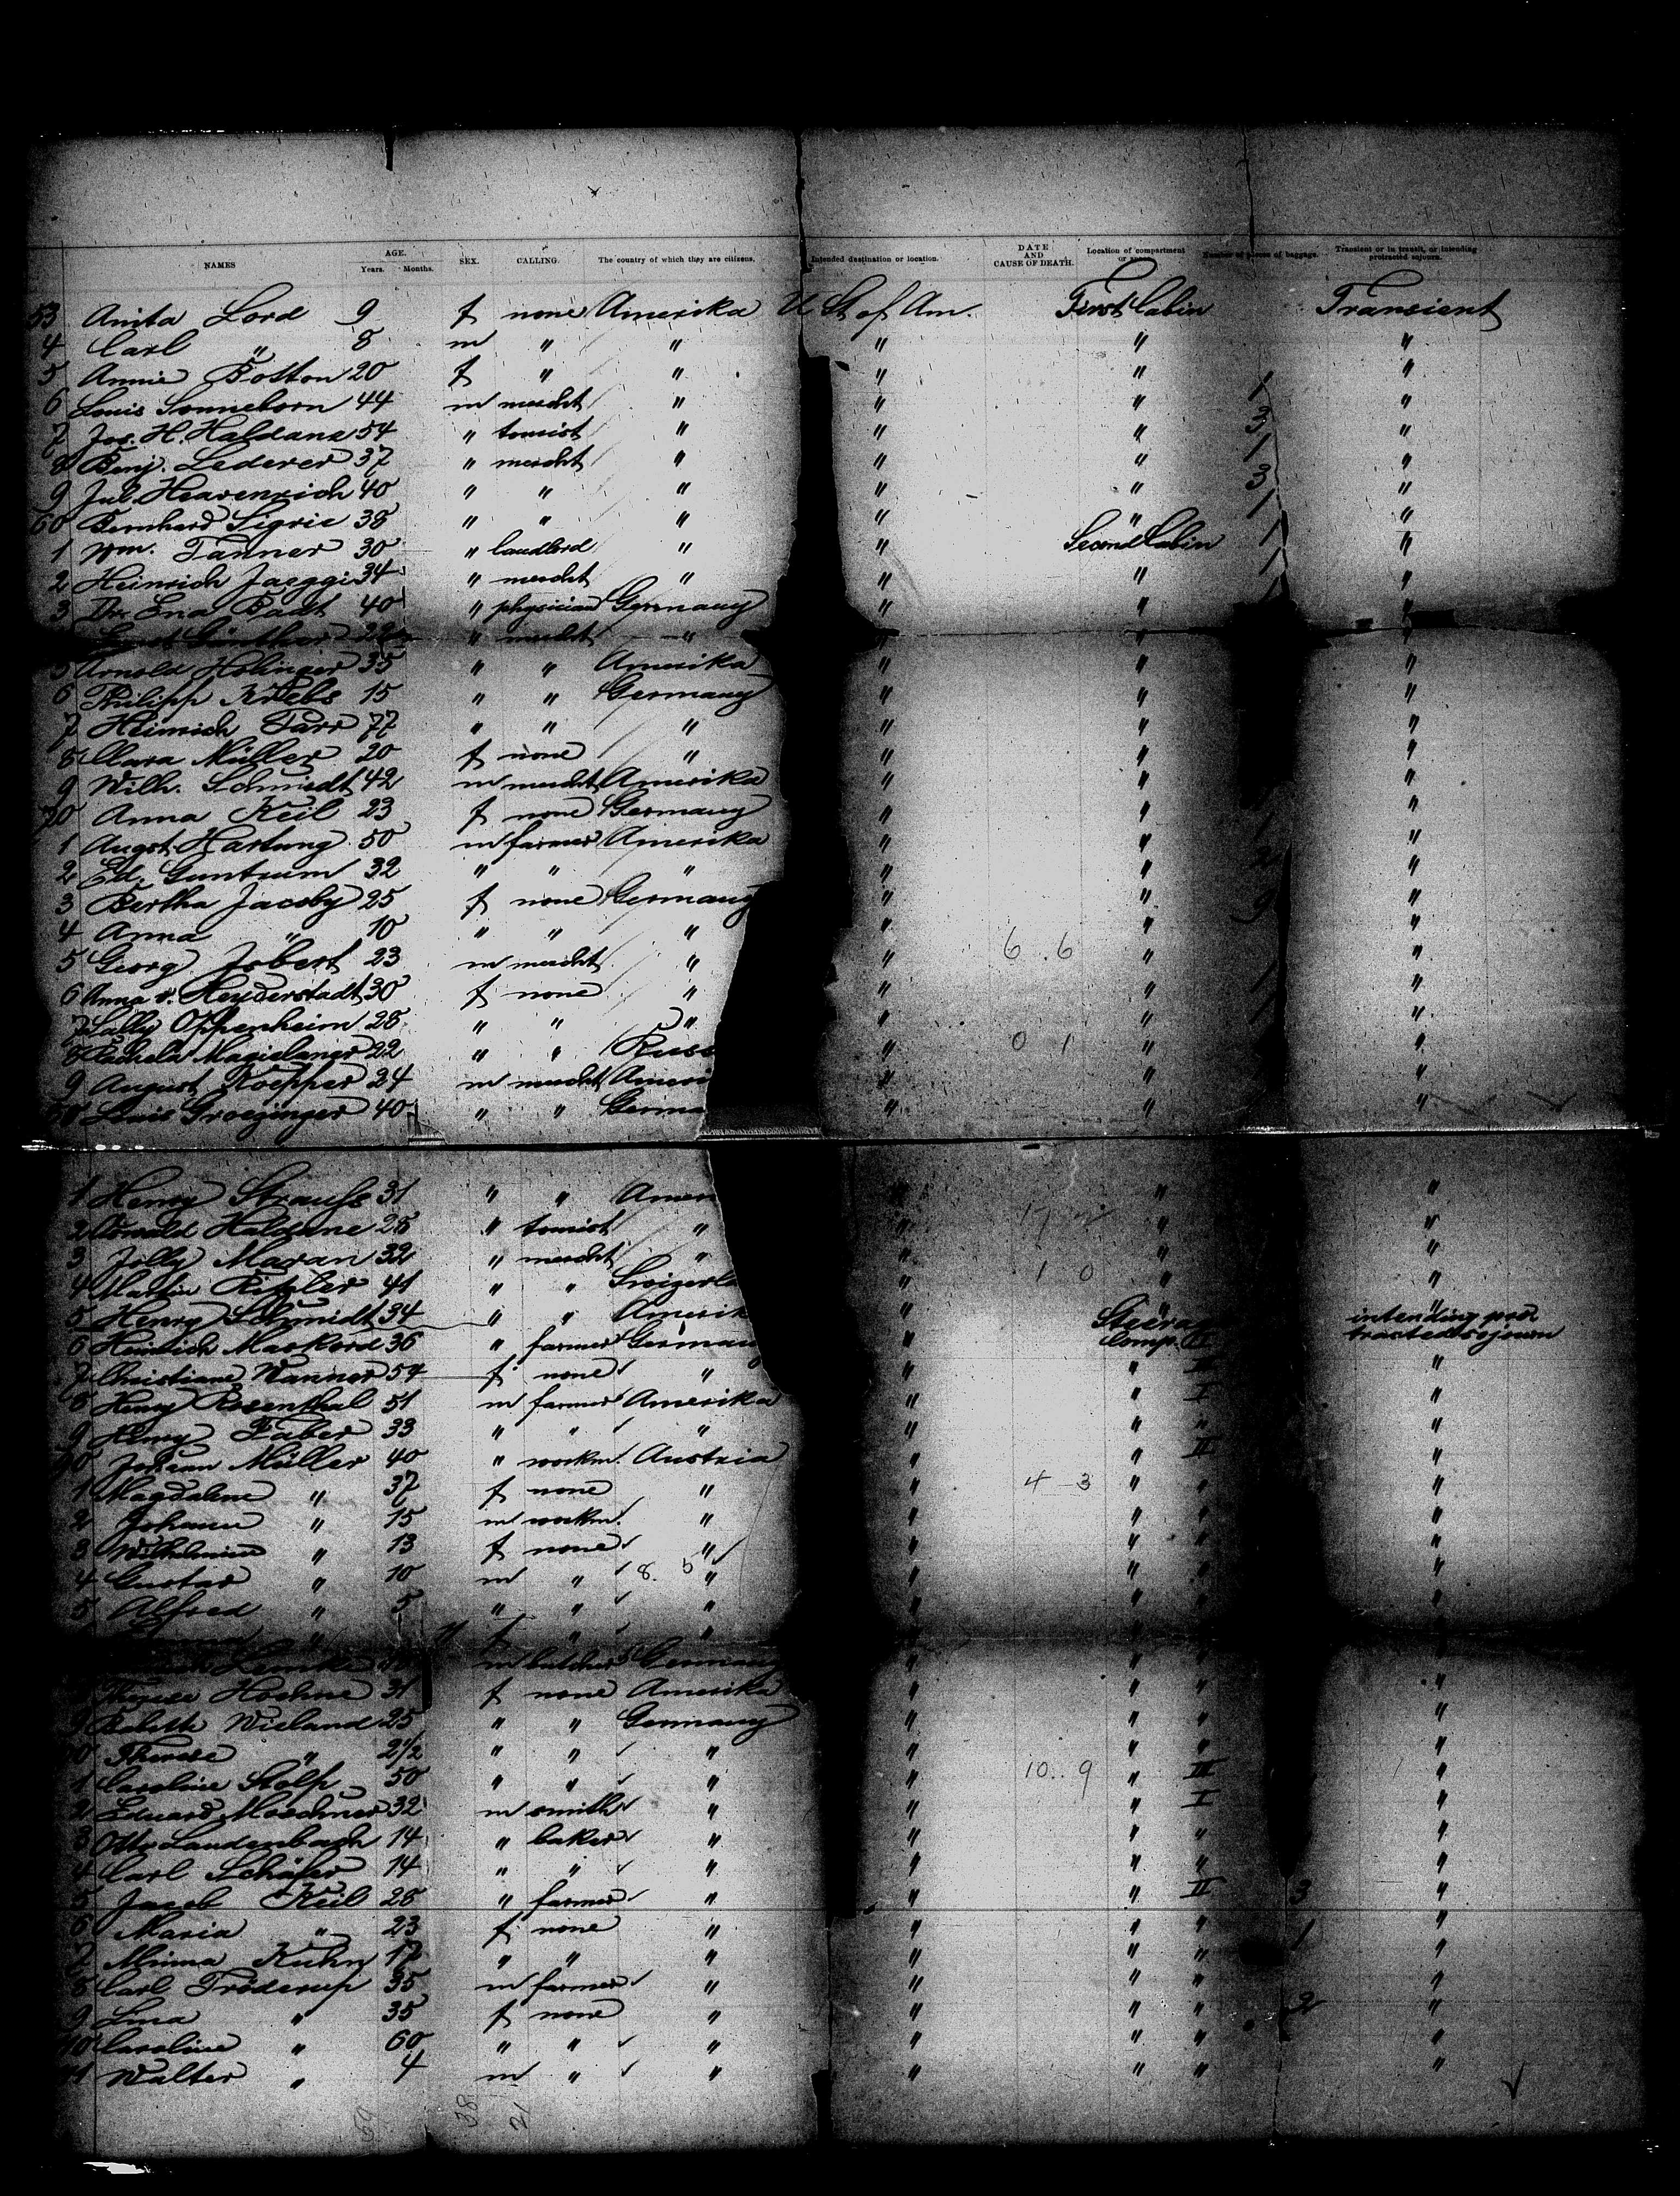 NAMES AGE. Years. Months. SEX. CALLING. The country of which they are citizens. Intended destination or location. DATE AND CAUSE OF DEATH. Location of compartment or space. Number of pieces of baggage. Transient or in transit, or intending protracted sojourn.
53 Anita Lord 9 f none Amerika U St of Am. First Cabin Transient
4 Carl " 8 m " " " " "
5 Annie Botton 20 f " " " " "
6 Louis Sonneborn 44 m mercht " " " 1 "
7 Jos. H. Haldane 54 " tourist " " " 3 "
8 Benj. Lederer 37 " mercht " " " 1 "
9 Jul. Heavenrich 40 " " " " " 3 "
60 Bernhard 38 " " " " " 1 "
1 Wm. Tanner 30 " landlord " " Second Cabin 1 "
2 Heinrich Jaeggi 34 " mercht " " " 1 "
3 Dr. Badt 40 " physician Germany " " "
" mercht " " " "
5 Arnold Holinger 35 " " Amerika " " "
6 Philipp Krebs 15 " " Germany " " "
7 Heinrich 77 " " " " " "
8 Clara Müller 20 f none " " " "
9 Wilh. Schmidt 42 m mercht Amerika " " "
70 Anna Keil 23 f none Germany " " "
1 Augost Hartung 50 m farmer Amerika " " 1 "
2 Ed. Guntrum 32 " " " " " 2 "
3 Bertha Jacoby 25 f none Germany " " 9 "
4 Anna " 10 " " " " " "
5 Georg Jobert 23 m mercht " " 6 . 6 " "
6 Anna v. Heyderstadt 30 f none " " " 1 "
7 Sally Oppenheim 28 " " " " " 1 "
8 22 " " Russ " 0 1 " "
9 August Koepper 24 m mercht Ameri " " "
80 Louis Groezinger 40 " " Germa " " "
1 Henry Strauss 31 " " Amer " " "
2 Haldane 28 " tourist " " 17 " "
3 Jolly Maran 32 " mercht " " " "
4 Martin 41 " " Swizerl " 1 0 " "
5 Henry Schmidt 34 " " Amerik " " "
6 Heinrich Markord 36 " farmer German " Steerag Comp. intending protracted sojourn
7 Christiane Wanner 54 f none " " " "
8 Henry Rosenthal 51 m farmer Amerika " " I "
9 Henry Faber 33 " " " " " " "
90 Johann Müller 40 " workm. Austria " " II "
1 Magdalene " 37 f none " " 4 - 3 " " "
2 Johann " 15 m workm. " " " " "
3 Wilhelmine " 13 f none " " " " "
4 Gustav " 10 m " 8. 5 " " " " "
5 Alfred " 5 " " " " " " "
" f " " " " " "
m butcher Germany " " " "
Therese Hoehne 31 f none Amerika " " " "
9 Babette Wieland 25 " " Germany " " " "
Therese " 2 1/2 " " " " " " "
1 Caroline Stolp 50 " " " " 10 . 9 " III "
2 Eduard Moschner 32 m smith " " " I "
3 Otto Laudenbach 14 " baker " " " " "
4 Carl Schäfer 14 " " " " " " "
5 Jacob Keil 28 " farmer " " " II 3 "
6 Maria " 23 f none " " " " 1 "
7 Minna Kuhn 17 " " " " " " "
8 Carl Tröderup 35 m farmer " " " " "
9 Lina " 35 f none " " " " 2 "
10 Caroline " 60 " " " " " " "
11 Walter " 4 m " " " " " "
59 38 21